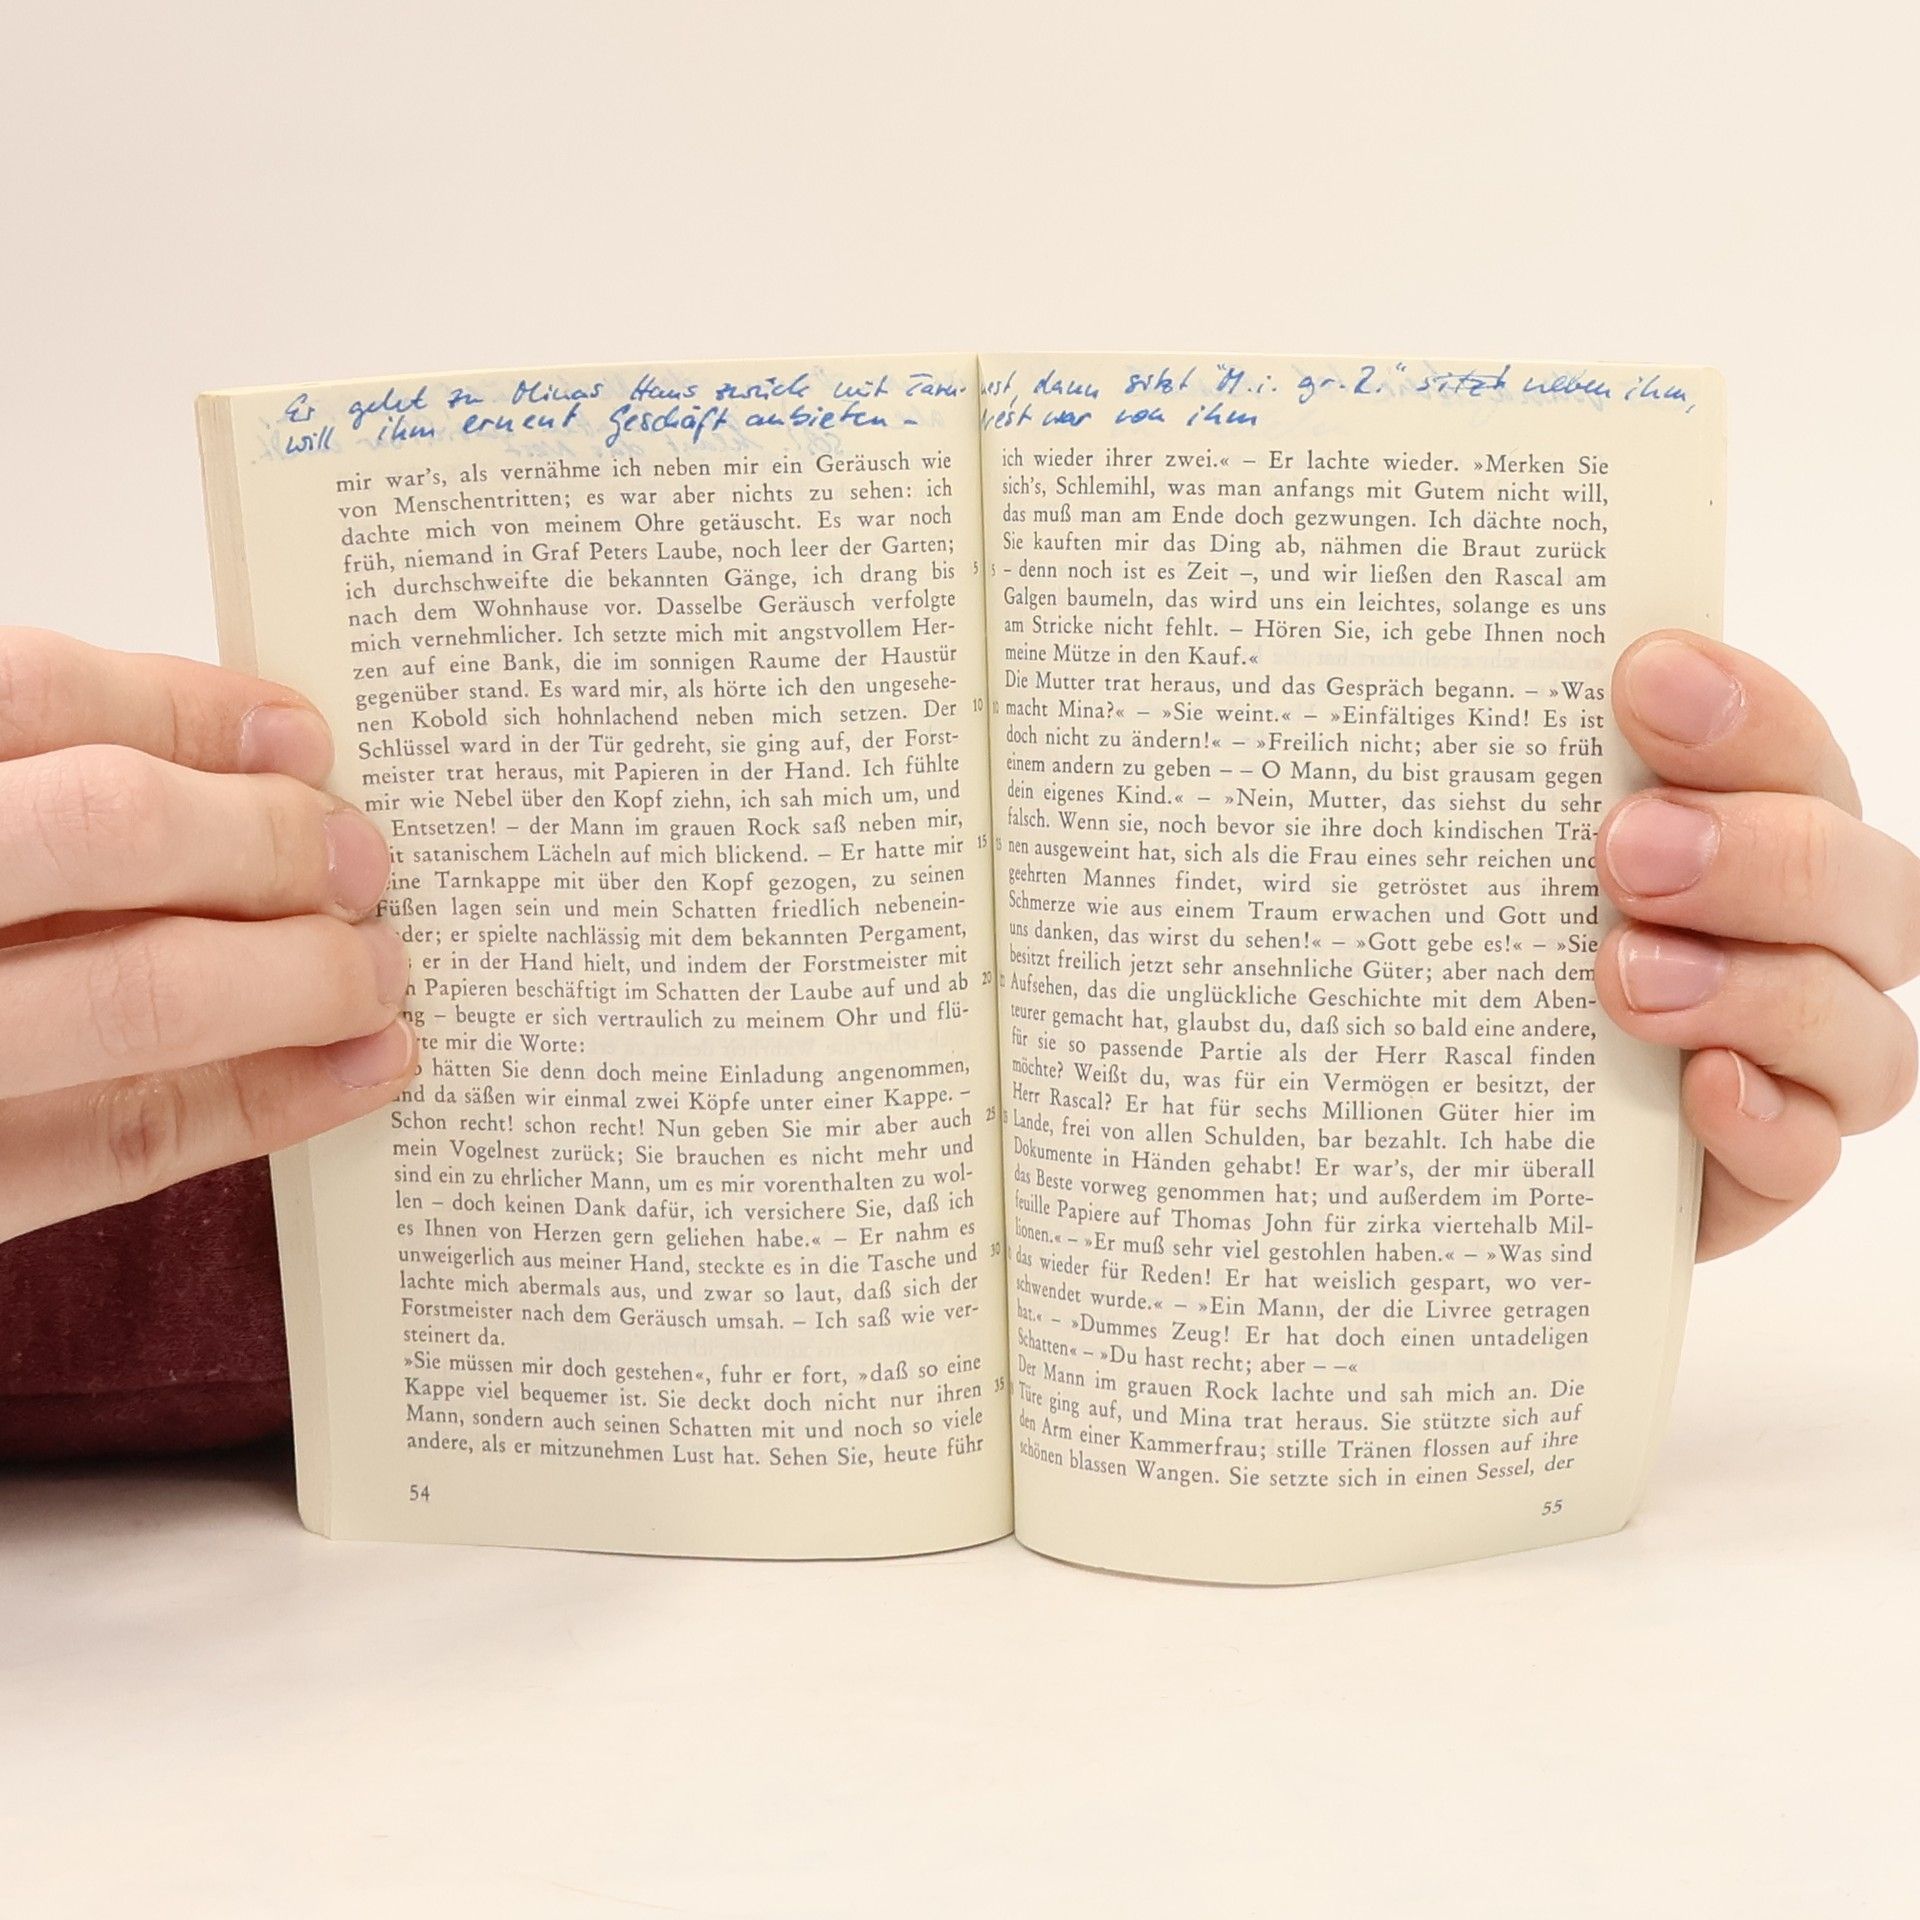 Er geht zu Minas Haus zurück mit Tarn-
will ihm erneut Geschäft anbieten –
mir war's, als vernähme ich neben mir ein Geräusch wie
von Menschentritten; es war aber nichts zu sehen: ich
dachte mich von meinem Ohre getäuscht. Es war noch
früh, niemand in Graf Peters Laube, noch leer der Garten;
ich durchschweifte die bekannten Gänge, ich drang bis 5
nach dem Wohnhause vor. Dasselbe Geräusch verfolgte
mich vernehmlicher. Ich setzte mich mit angstvollem Her-
zen auf eine Bank, die im sonnigen Raume der Haustür
gegenüber stand. Es ward mir, als hörte ich den ungesehe-
nen Kobold sich hohnlachend neben mich setzen. Der 10
Schlüssel ward in der Tür gedreht, sie ging auf, der Forst-
meister trat heraus, mit Papieren in der Hand. Ich fühlte
mir wie Nebel über den Kopf ziehn, ich sah mich um, und
Entsetzen! – der Mann im grauen Rock saß neben mir,
it satanischem Lächeln auf mich blickend. – Er hatte mir 15
ine Tarnkappe mit über den Kopf gezogen, zu seinen
Füßen lagen sein und mein Schatten friedlich nebenein-
der; er spielte nachlässig mit dem bekannten Pergament,
er in der Hand hielt, und indem der Forstmeister mit
Papieren beschäftigt im Schatten der Laube auf und ab 20
ng – beugte er sich vertraulich zu meinem Ohr und flü-
rte mir die Worte:
hätten Sie denn doch meine Einladung angenommen,
und da säßen wir einmal zwei Köpfe unter einer Kappe. –
Schon recht! schon recht! Nun geben Sie mir aber auch 25
mein Vogelnest zurück; Sie brauchen es nicht mehr und
sind ein zu ehrlicher Mann, um es mir vorenthalten zu wol-
len – doch keinen Dank dafür, ich versichere Sie, daß ich
es Ihnen von Herzen gern geliehen habe.« – Er nahm es
unweigerlich aus meiner Hand, steckte es in die Tasche und 30
lachte mich abermals aus, und zwar so laut, daß sich der
Forstmeister nach dem Geräusch umsah. – Ich saß wie ver-
steinert da.
»Sie müssen mir doch gestehen«, fuhr er fort, »daß so eine
Kappe viel bequemer ist. Sie deckt doch nicht nur ihren 35
Mann, sondern auch seinen Schatten mit und noch so viele
andere, als er mitzunehmen Lust hat. Sehen Sie, heute führ
54
nest, dann sitzt "M. i. gr. R." sitzt neben ihm,
Nest war von ihm
ich wieder ihrer zwei.« – Er lachte wieder. »Merken Sie
sich's, Schlemihl, was man anfangs mit Gutem nicht will,
das muß man am Ende doch gezwungen. Ich dächte noch,
Sie kauften mir das Ding ab, nähmen die Braut zurück
5 – denn noch ist es Zeit –, und wir ließen den Rascal am
Galgen baumeln, das wird uns ein leichtes, solange es uns
am Stricke nicht fehlt. – Hören Sie, ich gebe Ihnen noch
meine Mütze in den Kauf.«
Die Mutter trat heraus, und das Gespräch begann. – »Was
10 macht Mina?« – »Sie weint.« – »Einfältiges Kind! Es ist
doch nicht zu ändern!« – »Freilich nicht; aber sie so früh
einem andern zu geben – – O Mann, du bist grausam gegen
dein eigenes Kind.« – »Nein, Mutter, das siehst du sehr
falsch. Wenn sie, noch bevor sie ihre doch kindischen Trä-
15 nen ausgeweint hat, sich als die Frau eines sehr reichen und
geehrten Mannes findet, wird sie getröstet aus ihrem
Schmerze wie aus einem Traum erwachen und Gott und
uns danken, das wirst du sehen!« – »Gott gebe es!« – »Sie
besitzt freilich jetzt sehr ansehnliche Güter; aber nach dem
Aufsehen, das die unglückliche Geschichte mit dem Aben-
teurer gemacht hat, glaubst du, daß sich so bald eine andere,
für sie so passende Partie als der Herr Rascal finden
möchte? Weißt du, was für ein Vermögen er besitzt, der
Herr Rascal? Er hat für sechs Millionen Güter hier im
Lande, frei von allen Schulden, bar bezahlt. Ich habe die
Dokumente in Händen gehabt! Er war's, der mir überall
das Beste vorweg genommen hat; und außerdem im Porte-
feuille Papiere auf Thomas John für zirka viertehalb Mil-
lionen.« – »Er muß sehr viel gestohlen haben.« – »Was sind
das wieder für Reden! Er hat weislich gespart, wo ver-
schwendet wurde.« – »Ein Mann, der die Livree getragen
hat.« – »Dummes Zeug! Er hat doch einen untadeligen
Schatten« – »Du hast recht; aber – –«
Der Mann im grauen Rock lachte und sah mich an. Die
Türe ging auf, und Mina trat heraus. Sie stützte sich auf
den Arm einer Kammerfrau; stille Tränen flossen auf ihre
schönen blassen Wangen. Sie setzte sich in einen Sessel, der
55